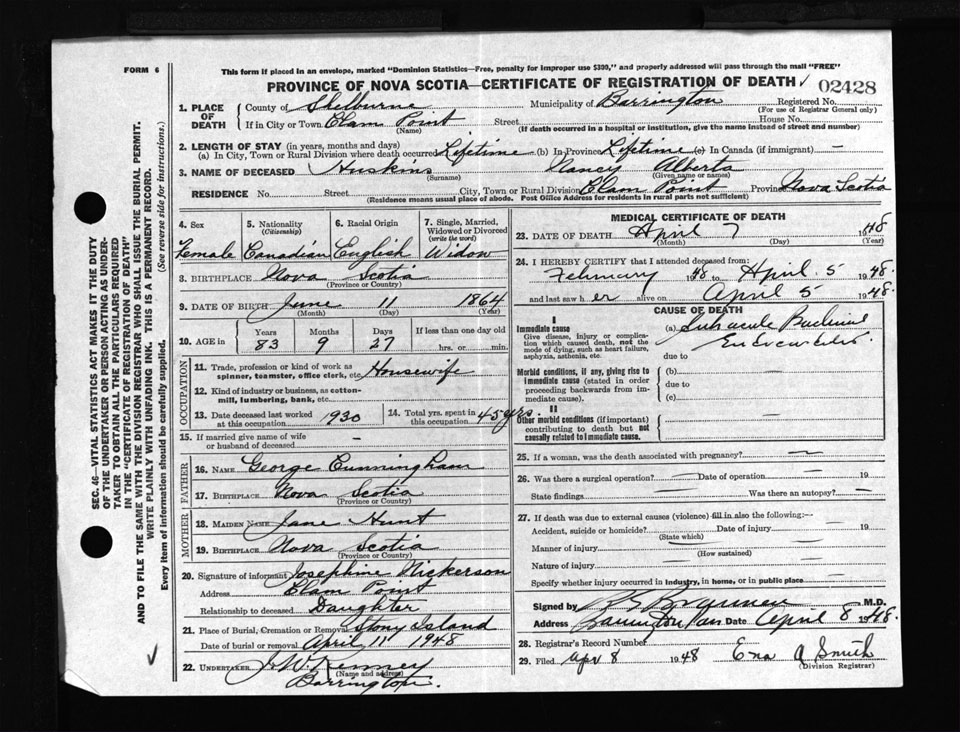 FORM 6
This form if placed in an envelope, marked "Dominion Statistics—Free, penalty for improper use $300," and properly addressed will pass through the mail "FREE"
PROVINCE OF NOVA SCOTIA—CERTIFICATE OF REGISTRATION OF DEATH ✓ 02428
1. PLACE OF DEATH { County of Shelburne Municipality of Barrington Registered No.
(For use of Registrar General only)
If in City or Town Clam Point Street House No.
(Name) (If death occurred in a hospital or institution, give the name instead of street and number)
2. LENGTH OF STAY (in years, months and days)
(a) In City, Town or Rural Division where death occurred Lifetime (b) In Province Lifetime (c) In Canada (if immigrant) —
3. NAME OF DECEASED Huskins Nancy Alberta
(Surname) (Given name or names)
RESIDENCE No. Street City, Town or Rural Division Clam Point Province Nova Scotia
(Residence means usual place of abode. Post Office Address for residents in rural parts not sufficient)
4. Sex 5. Nationality (Citizenship) 6. Racial Origin 7. Single, Married, Widowed or Divorced (write the word)
Female Canadian English Widow
8. BIRTHPLACE Nova Scotia
(Province or Country)
9. DATE OF BIRTH June 11 1864
(Month) (Day) (Year)
10. AGE in Years Months Days If less than one day old
83 9 27 hrs. or min.
OCCUPATION
11. Trade, profession or kind of work as spinner, teamster, office clerk, etc. Housewife
12. Kind of industry or business, as cotton-mill, lumbering, bank, etc.
13. Date deceased last worked at this occupation 1930 14. Total yrs. spent in this occupation 45 yrs.
15. If married give name of wife or husband of deceased —
FATHER
16. NAME George Cunningham
17. BIRTHPLACE Nova Scotia
(Province or Country)
MOTHER
18. MAIDEN NAME Jane Hunt
19. BIRTHPLACE Nova Scotia
(Province or Country)
20. Signature of informant Josephine Nickerson
Address Clam Point
Relationship to deceased Daughter
21. Place of Burial, Cremation or Removal Stony Island
Date of burial or removal April 11 1948
22. UNDERTAKER J W Kenney
(Name and address)
Barrington.
MEDICAL CERTIFICATE OF DEATH
23. DATE OF DEATH April 7 1948
(Month) (Day) (Year)
24. I HEREBY CERTIFY that I attended deceased from:
February 48 to April 5 1948.
and last saw h er alive on April 5 1948.
CAUSE OF DEATH
I
Immediate cause
Give disease, injury or complication which caused death, not the mode of dying, such as heart failure, asphyxia, asthenia, etc.
(a) Subacute
due to
Morbid conditions, if any, giving rise to immediate cause (stated in order proceeding backwards from immediate cause).
(b)
due to
(c)
II
Other morbid conditions (if important) contributing to death but not causally related to immediate cause.
25. If a woman, was the death associated with pregnancy? —
26. Was there a surgical operation? — Date of operation — 19
State findings — Was there an autopsy? —
27. If death was due to external causes (violence) fill in also the following:—
Accident, suicide or homicide? Date of injury — 19
(State which)
Manner of injury
(How sustained)
Nature of injury
Specify whether injury occurred in industry, in home, or in public place
Signed by M.D.
Address Date April 8 1948.
28. Registrar's Record Number
29. Filed Apr 8 1948 Ena A Smith
(Division Registrar)
SEC. 46—VITAL STATISTICS ACT MAKES IT THE DUTY
OF THE UNDERTAKER OR PERSON ACTING AS UNDER-
TAKER TO OBTAIN ALL THE PARTICULARS REQUIRED
IN THE "CERTIFICATE OF REGISTRATION OF DEATH"
AND TO FILE THE SAME WITH THE DIVISION REGISTRAR WHO SHALL ISSUE THE BURIAL PERMIT.
WRITE PLAINLY WITH UNFADING INK. THIS IS A PERMANENT RECORD.
Every item of information should be carefully supplied. (See reverse side for instructions.)